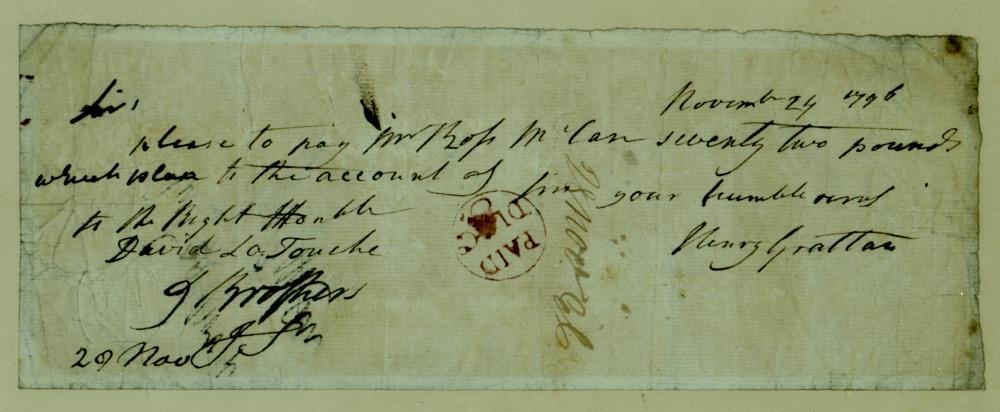 Novembr 24 1796
Sir,
please to pay Mr Ross McCan seventy two pounds
which place to the account of Sir your humble
to the Right Honble
David La Touche
Henry Grattan
& Brothers
28 Nov
PAID